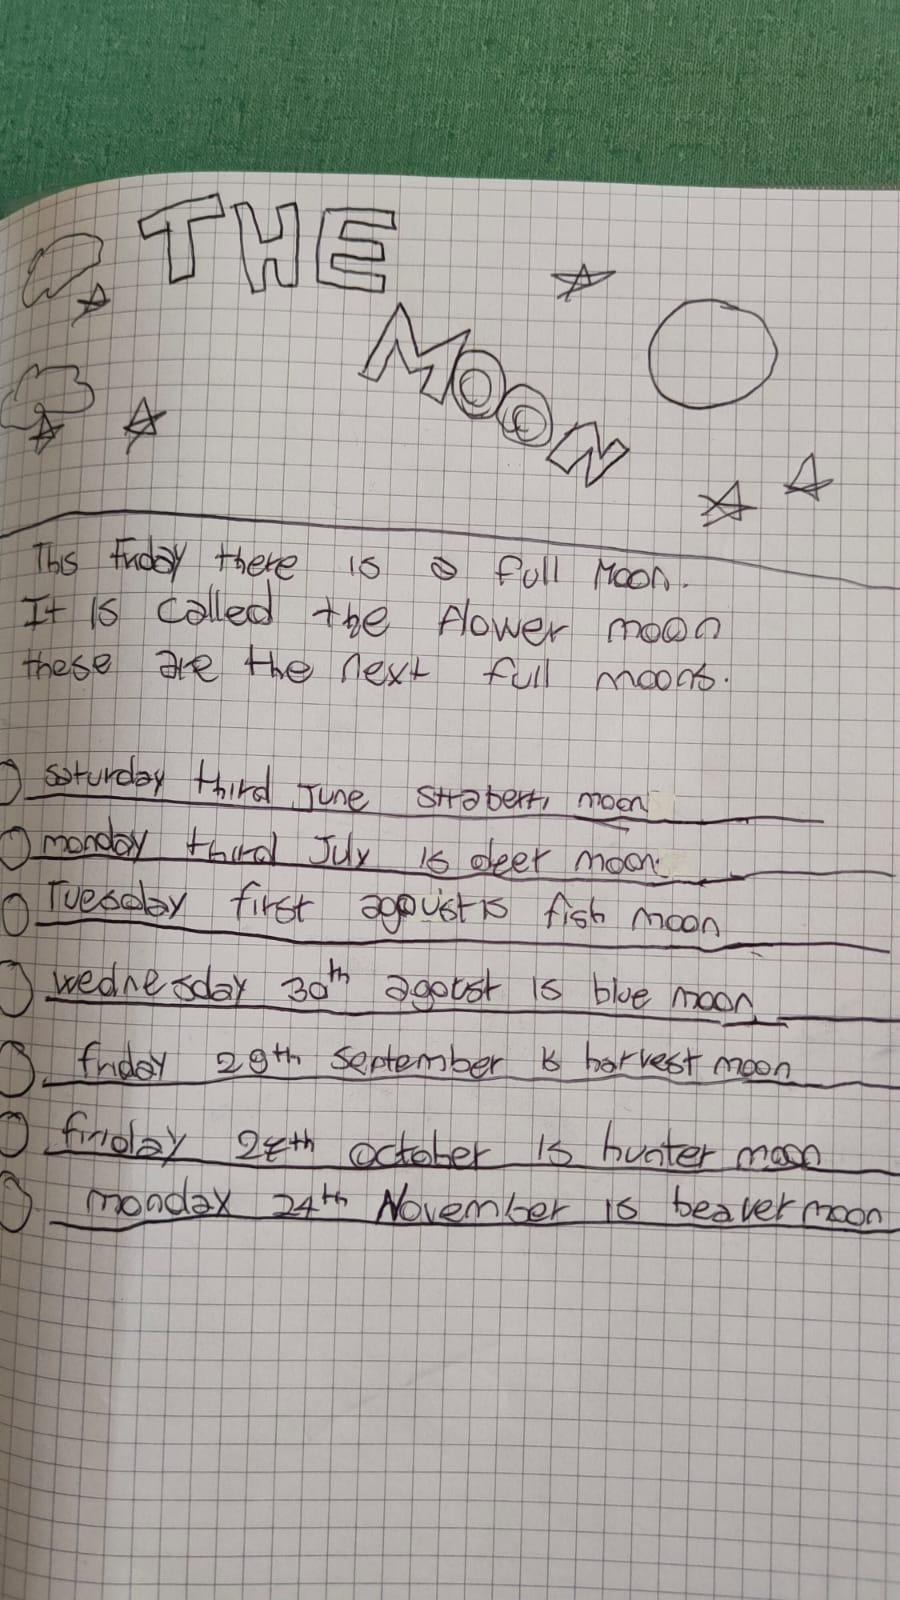 THE
MOON
This friday there is a full Moon.
It is called the flower moon
these are the next full moons.
saturday third June straberri moon
monday third July is deer moon.
Tuesday first agoust is fish moon
wednesday 30th agoust is blue moon
friday 29th September is harvest moon
friday 28th october is hunter moon
monday 24th November is beaver moon